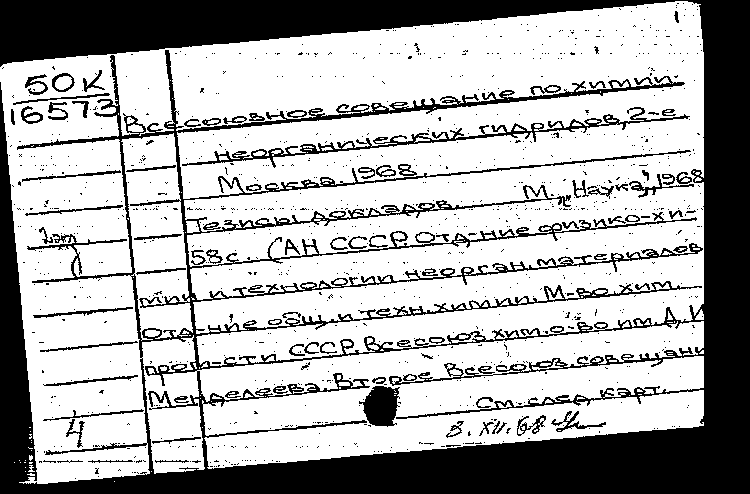 50К
16573
Всесоюзное совещание по химии
неорганических гидридов, 2-е.
Москва. 1968.
Тезисы докладов. М., „Наука“, 1968
58с. (АН СССР. Отд-ние физико-хи-
мии и технологии неорган. материалов
Отд-ние общ. и техн. химии. М-во хим.
пром-сти СССР. Всесоюз. хим. о-во им. Д. И
Менделеева. Второе Всесоюз. совещани
См. след карт.
4
3. XII. 68